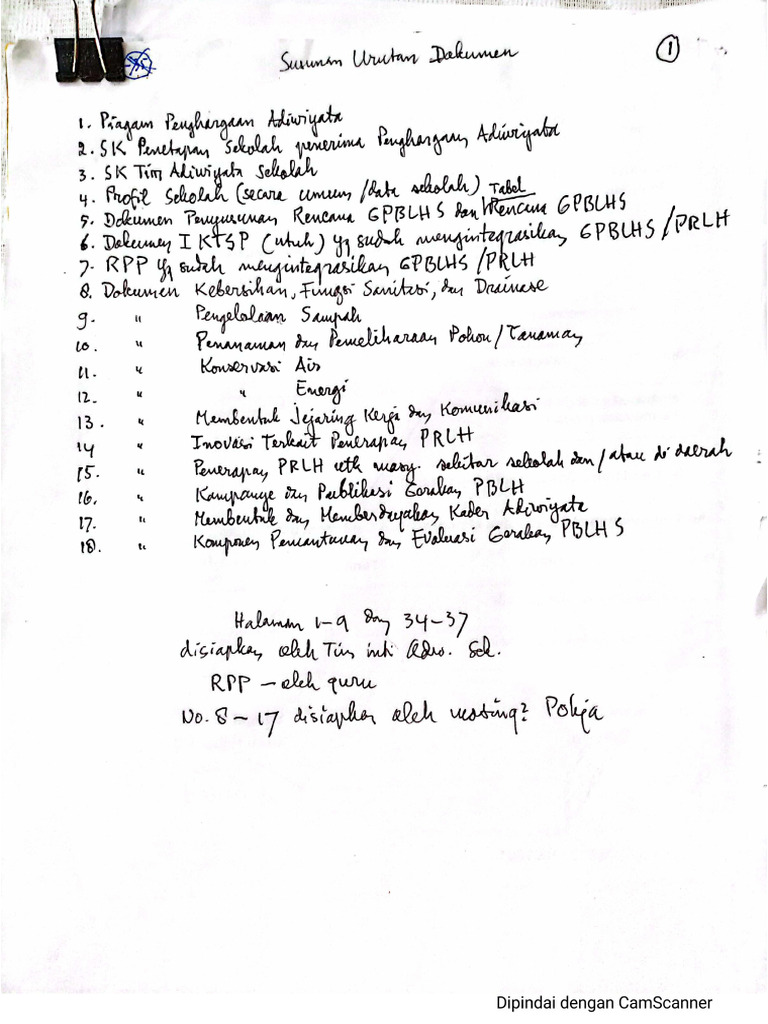 Susunan Urutan Dokumen
1
1. Piagam Penghargaan Adiwiyata
2. SK Penetapan Sekolah penerima Penghargaan Adiwiyata
3. SK Tim Adiwiyata Sekolah
4. Profil Sekolah (secara umum/data sekolah) Tabel
5. Dokumen Penyusunan Rencana GPBLHS dan Rencana GPBLHS
6. Dokumen I KTSP (utuh) yg sudah mengintegrasikan GPBLHS/PRLH
7. RPP yg sudah mengintegrasikan GPBLHS/PRLH
8. Dokumen Kebersihan, Fungsi Sanitasi, dan Drainase
9. " Pengelolaan Sampah
10. " Penanaman dan Pemeliharaan Pohon/Tanaman
11. " Konservasi Air
12. " " Energi
13. " Membentuk Jejaring Kerja dan Komunikasi
14 " Inovasi Terkait Penerapan PRLH
15. " Penerapan PRLH utk masy. sekitar sekolah dan/atau di daerah
16. " Kampanye dan Publikasi Gerakan PBLH
17. " Membentuk dan Memberdayakan Kader Adiwiyata
18. " Komponen Pemantauan dan Evaluasi Gerakan PBLHS
Halaman 1-9 dan 34-37
disiapkan oleh Tim inti Adw. Sek.
RPP - oleh guru
No. 8-17 disiapkan oleh masing2 Pokja
Dipindai dengan CamScanner